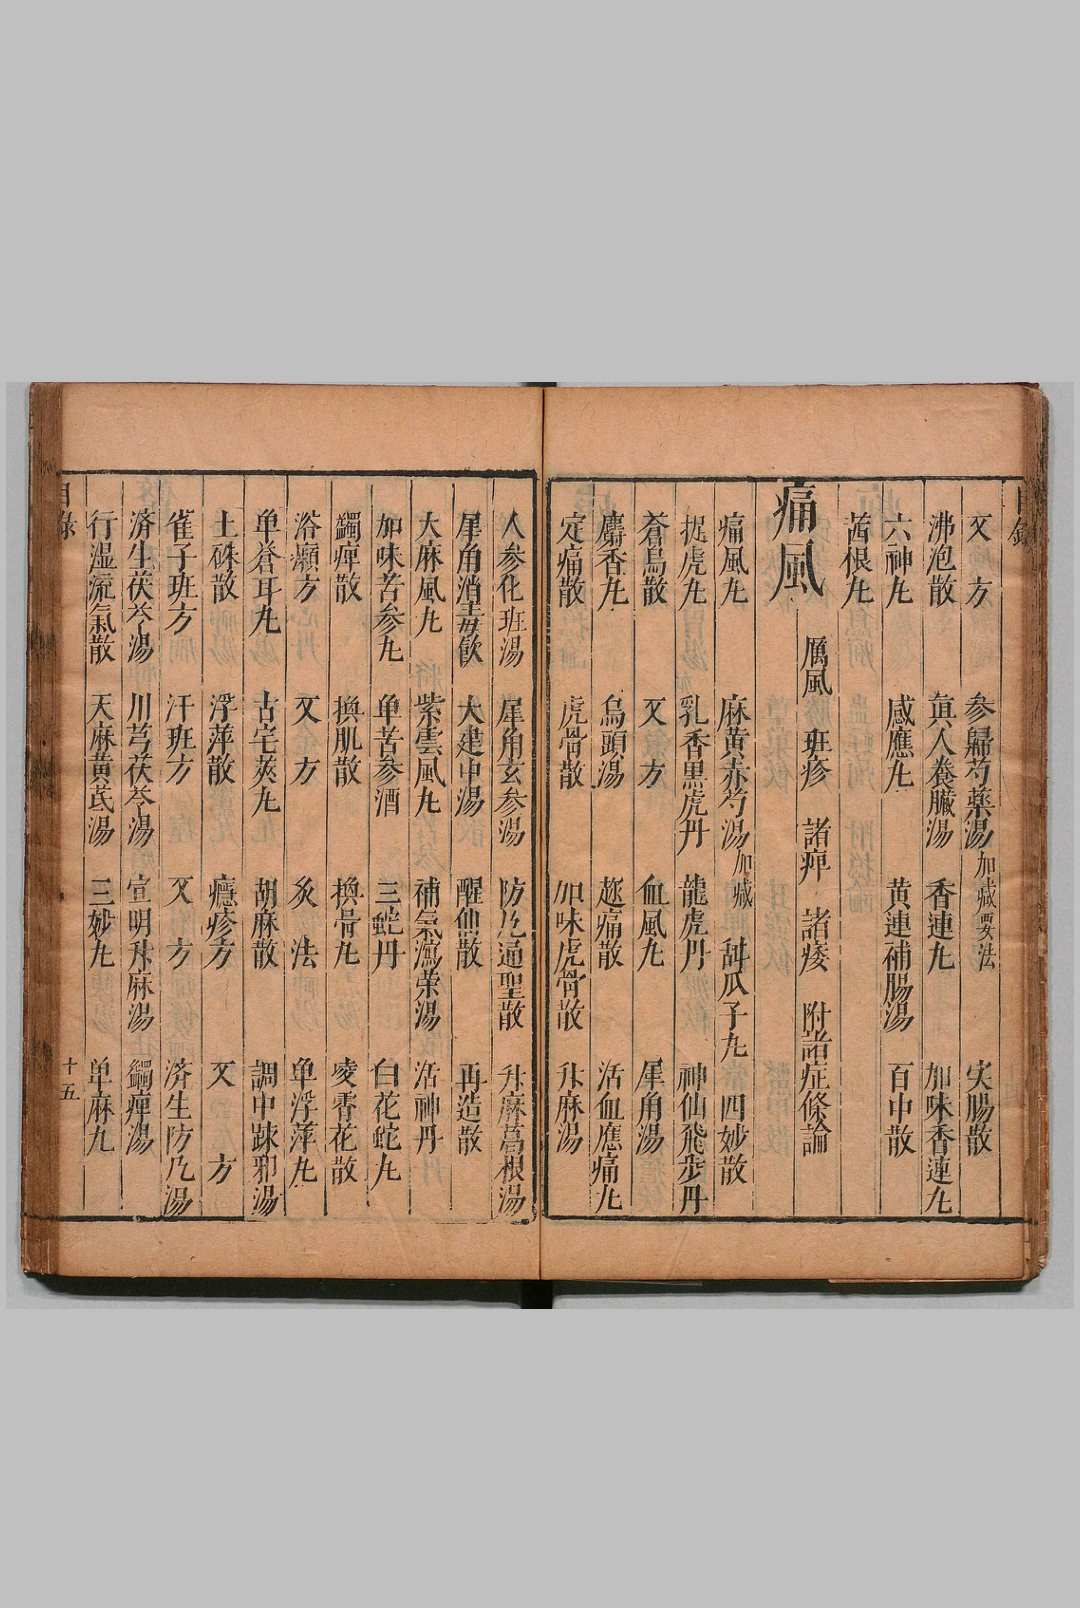 目錄
又方　參歸芍藥湯加減要法　实腸散
沸泡散　眞人養臟湯　香連九　加味香連九
六神九　感應九　黄連補腸湯　百中散
茜根九
痛風　厲風　班疹　諸痹　諸痿　附諸症條論
痛風九　麻黄赤芍湯加减　甜瓜子九　四妙散
捉虎九　乳香黒虎丹　龍虎丹　神仙飛步丹
蒼烏散　又方　血風九　犀角湯
麝香九　烏頭湯　趂痛散　活血應痛九
定痛散　虎骨散　加味虎骨散　升麻湯
人参化班湯　犀角玄参湯　防风通聖散　升麻葛根湯
犀角消毒飲　大建中湯　醒仙散　再造散
大麻風九　紫雲風九　補氣瀉荣湯　活神丹
加味苦参九　单苦参酒　三蛇丹　白花蛇九
蠲痺散　換肌散　換骨九　凌霄花散
浴癩方　又方　炙法　单浮萍九
单蒼耳九　古宅莢九　胡麻散　調中踈邪湯
土硃散　浮萍散　癮疹方　又方
雀子班方　汗班方　又方　済生防风湯
済生茯苓湯　川芎茯苓湯　宣明升麻湯　蠲痺湯
行湿流氣散　天麻黄芪湯　三妙九　单麻九
目錄　十五